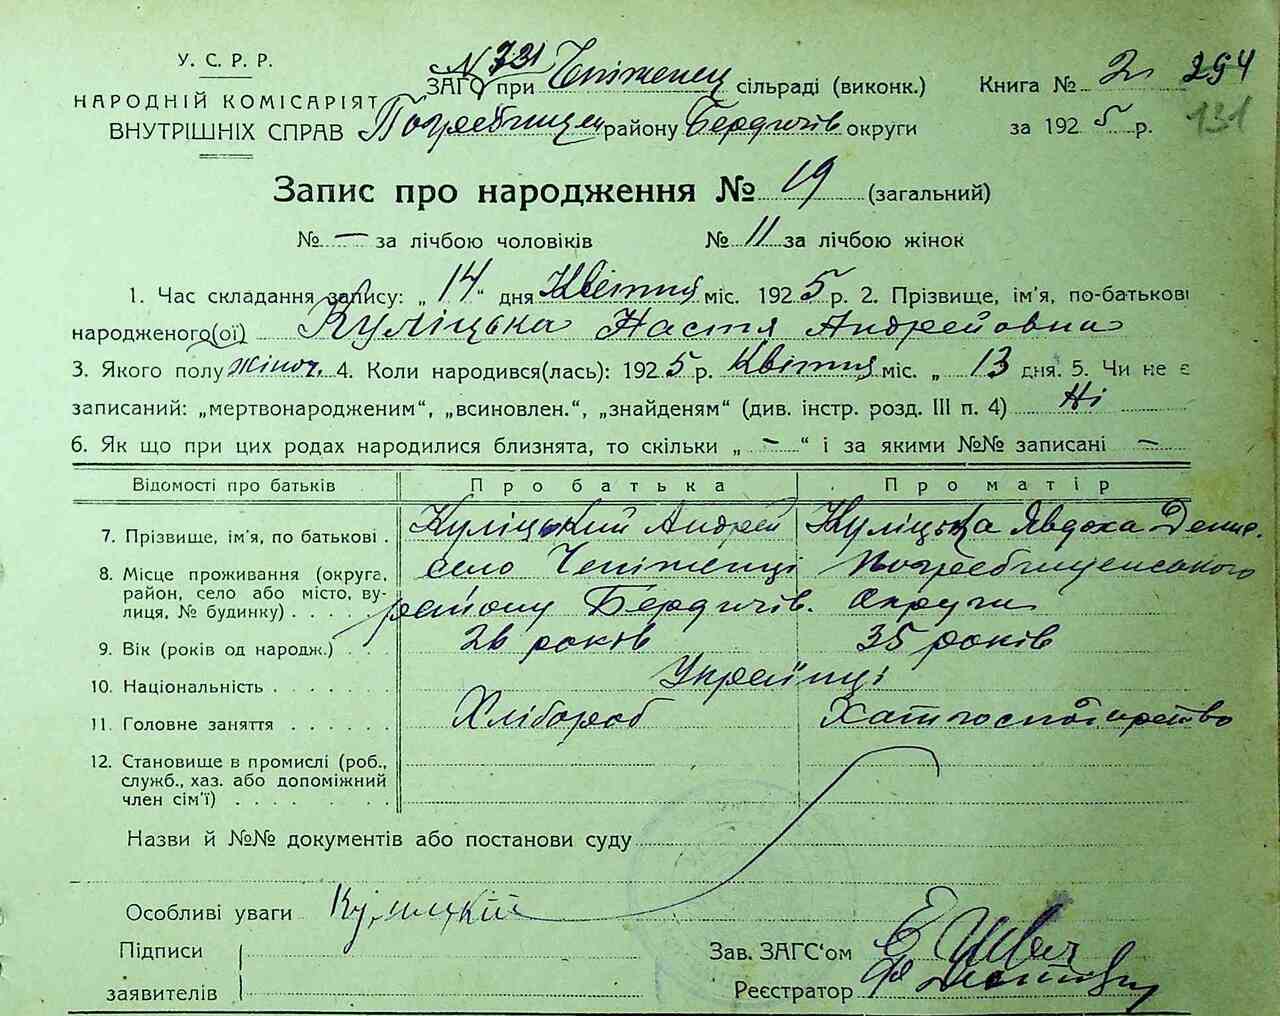 У. С. Р. Р.
НАРОДНІЙ КОМІСАРІЯТ
ВНУТРІШНІХ СПРАВ
№ 731
ЗАГС при Чепіженец сільраді (виконк.) Книга № 2 294
Погребищен району Бердичів округи за 1925 р. 131
Запис про народження № 19 (загальний)
№ — за лічбою чоловіків № 11 за лічбою жінок
1. Час складання запису: „14“ дня Квітня міс. 1925 р. 2. Прізвище, ім'я, по-батькові
народженого(ої) Куліцька Настя Андрейовна
3. Якого полу жіноч. 4. Коли народився(лась): 1925 р. Квітня міс. „ 13 дня. 5. Чи не є
записаний: „мертвонародженим“, „всиновлен.“, „знайденям“ (див. інстр. розд. III п. 4) Ні
6. Як що при цих родах народилися близнята, то скільки „ — “ і за якими №№ записані —
Відомості про батьків Про батька Про матір
7. Прізвище, ім'я, по батькові . Куліцький Андрей Куліцька Явдоха Дени.
8. Місце проживання (округа, район, село або місто, вулиця, № будинку) . . . . село Чепіженці Погребищенського
району Бердичів. Округи
9. Вік (років од народж.) . . . 26 років 35 років
10. Національність . . . . . . . Українці
11. Головне заняття . . . . . . Хлібороб Хатн господарство
12. Становище в промислі (роб.,
служб., хаз. або допоміжний
член сім'ї) . . . . . . . . .
Назви й №№ документів або постанови суду
Особливі уваги Куліцкій
Підписи
заявителів
Зав. ЗАГС'ом
Реєстратор